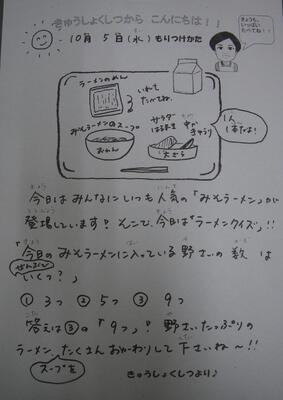 きゅうしょくしつから こんにちは！！
10月 5日(水) もりつけかた
きょうも、
いっぱい
たべてね！！
ラーメンのめん
いれて
たべてね。
みそラーメンのスープ
おわん
サラダ
はるまき
中か
きゅうり
大ざら
1人
1本だよ！
今日はみんなにいつも人気の「みそラーメン」が
登場しています！ そこで、今日は「ラーメンクイズ」！！
「今日のみそラーメンに入っている野さいの数は
ぜんぶで
いくつ？」
① 3つ ② 5つ ③ 9つ
答えは③の「9つ」！ 野さいたっぷりの
ラーメン、たくさんおかわりして下さいね〜！！
スープを
きゅうしょくしつより♪